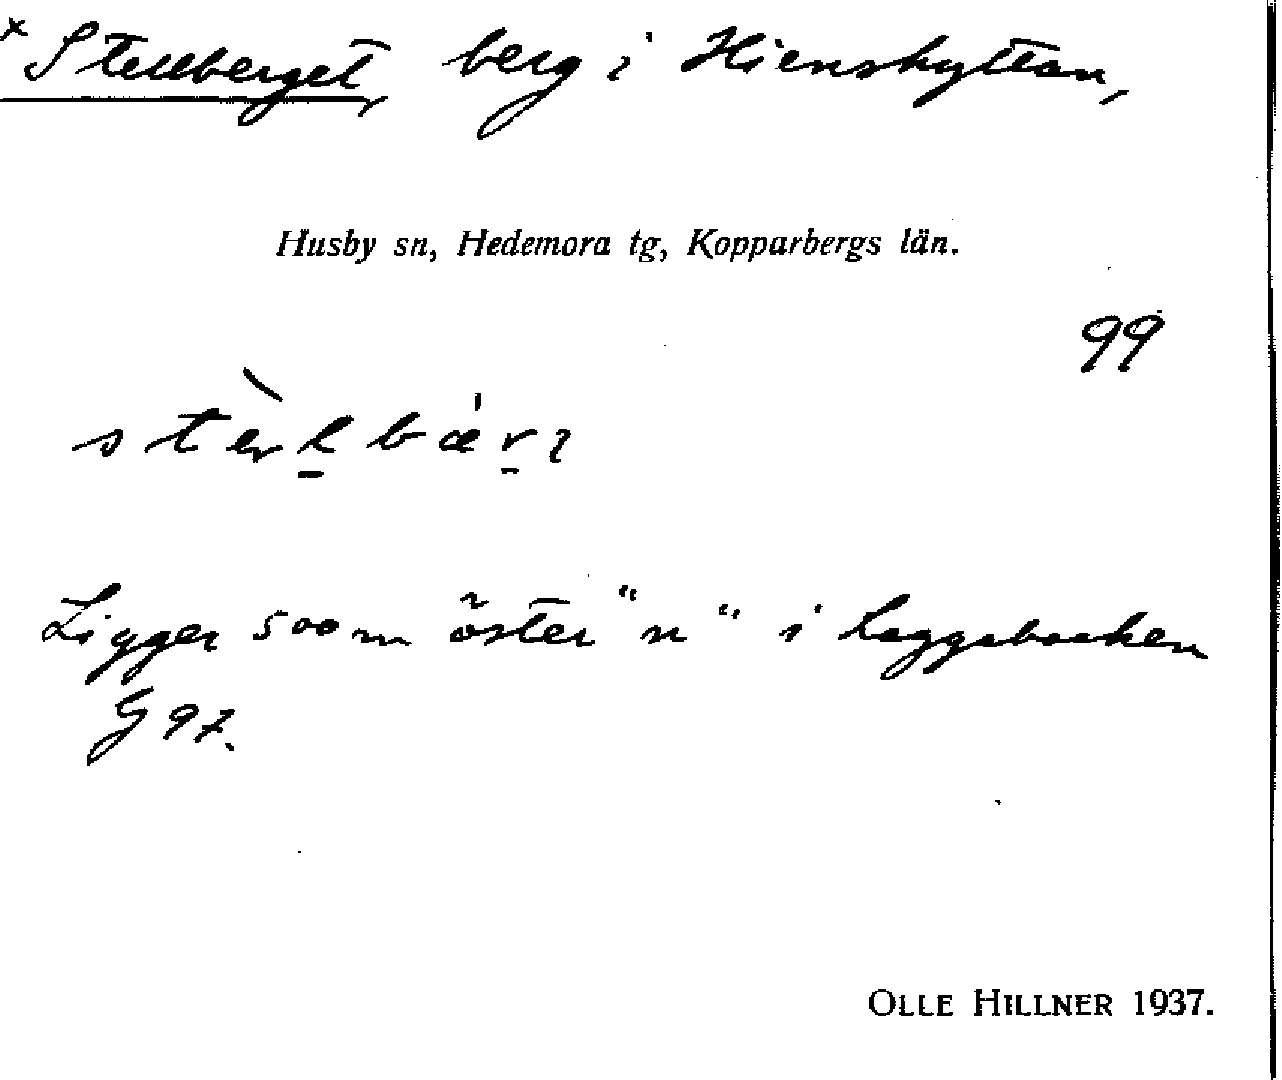 x Stellberget, berg i Hienshyttan,
Husby sn, Hedemora tg, Kopparbergs län.
99
Ligger 500 m öster "n" i Laggsbacken
G 97.
OLLE HILLNER 1937.